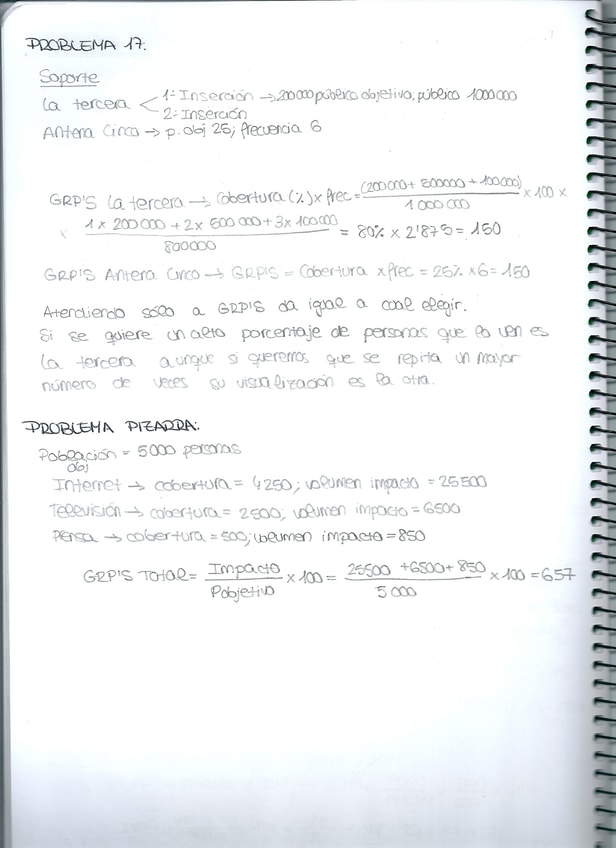 PROBLEMA 17.
Soporte
La tercera < 1ª Inserción → 200000 público objetivo; público 1000000
2ª Inserción
Antena Cinco → p. obj 25; frecuencia 6
GRP'S La tercera → Cobertura (%) x frec = (200000 + 500000 + 100000) / 1000000 x 100 x
x (1 x 200000 + 2 x 500000 + 3 x 100000) / 800000 = 80% x 2'875 = 150
GRP'S Antena Cinco → GRP'S = Cobertura x frec = 25% x 6 = 150
Atendiendo sólo a GRP'S da igual a cual elegir.
Si se quiere un alto porcentaje de personas que lo ven es
la tercera aunque si queremos que se repita un mayor
número de veces su visualización es la otra.
PROBLEMA PIZARRA:
Población obj = 5000 personas
Internet → cobertura = 4250; volumen impacto = 25500
Televisión → cobertura = 2500; volumen impacto = 6500
Prensa → cobertura = 500; volumen impacto = 850
GRP'S TOTAL = Impacto / P.objetivo x 100 = (25500 + 6500 + 850) / 5000 x 100 = 657